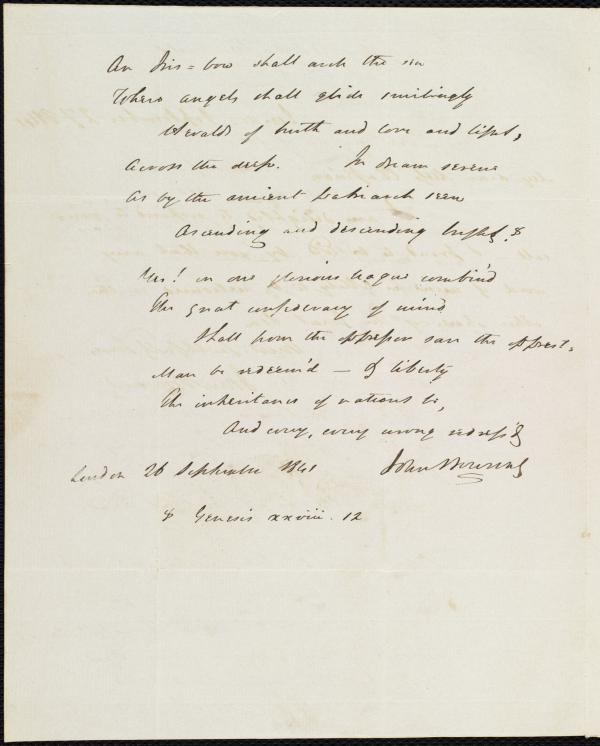 An Iris=bow shall arch the sea
Where angels shall glide smilingly
Heralds of truth and love and light,
Across the deep. In dream serene
As by the ancient Patriarch seen
Ascending and descending bright. &
Yes! in one glorious league combin'd
The great confederacy of mind
Shall from the oppressor save the opprest,
Man be redeem'd — & liberty
The inheritance of nations be,
And every, every wrong redress'd
London 26 September 1841 John Bowring
& Genesis xxviii. 12